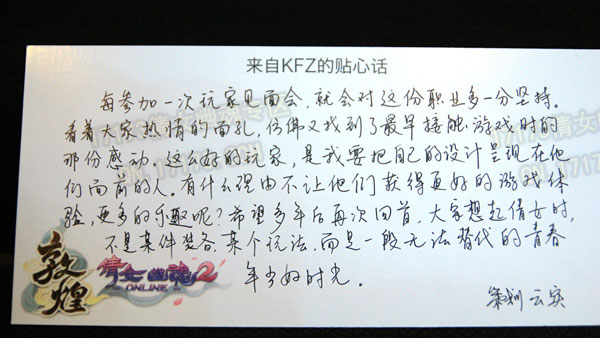 来自KFZ的贴心话
每参加一次玩家见面会，就会对这份职业多一分坚持。
看着大家热情的面孔，仿佛又找到了最早接触游戏时的
那份感动。这么好的玩家，是我要把自己的设计呈现在他
们面前的人。有什么理由不让他们获得更好的游戏体
验，更多的乐趣呢？希望多年后再次回首，大家想起倩女时，
不是某件装备、某个玩法，而是一段无法替代的青春
年少好时光。
敦煌
倩女幽魂2
ONLINE
策划 云实